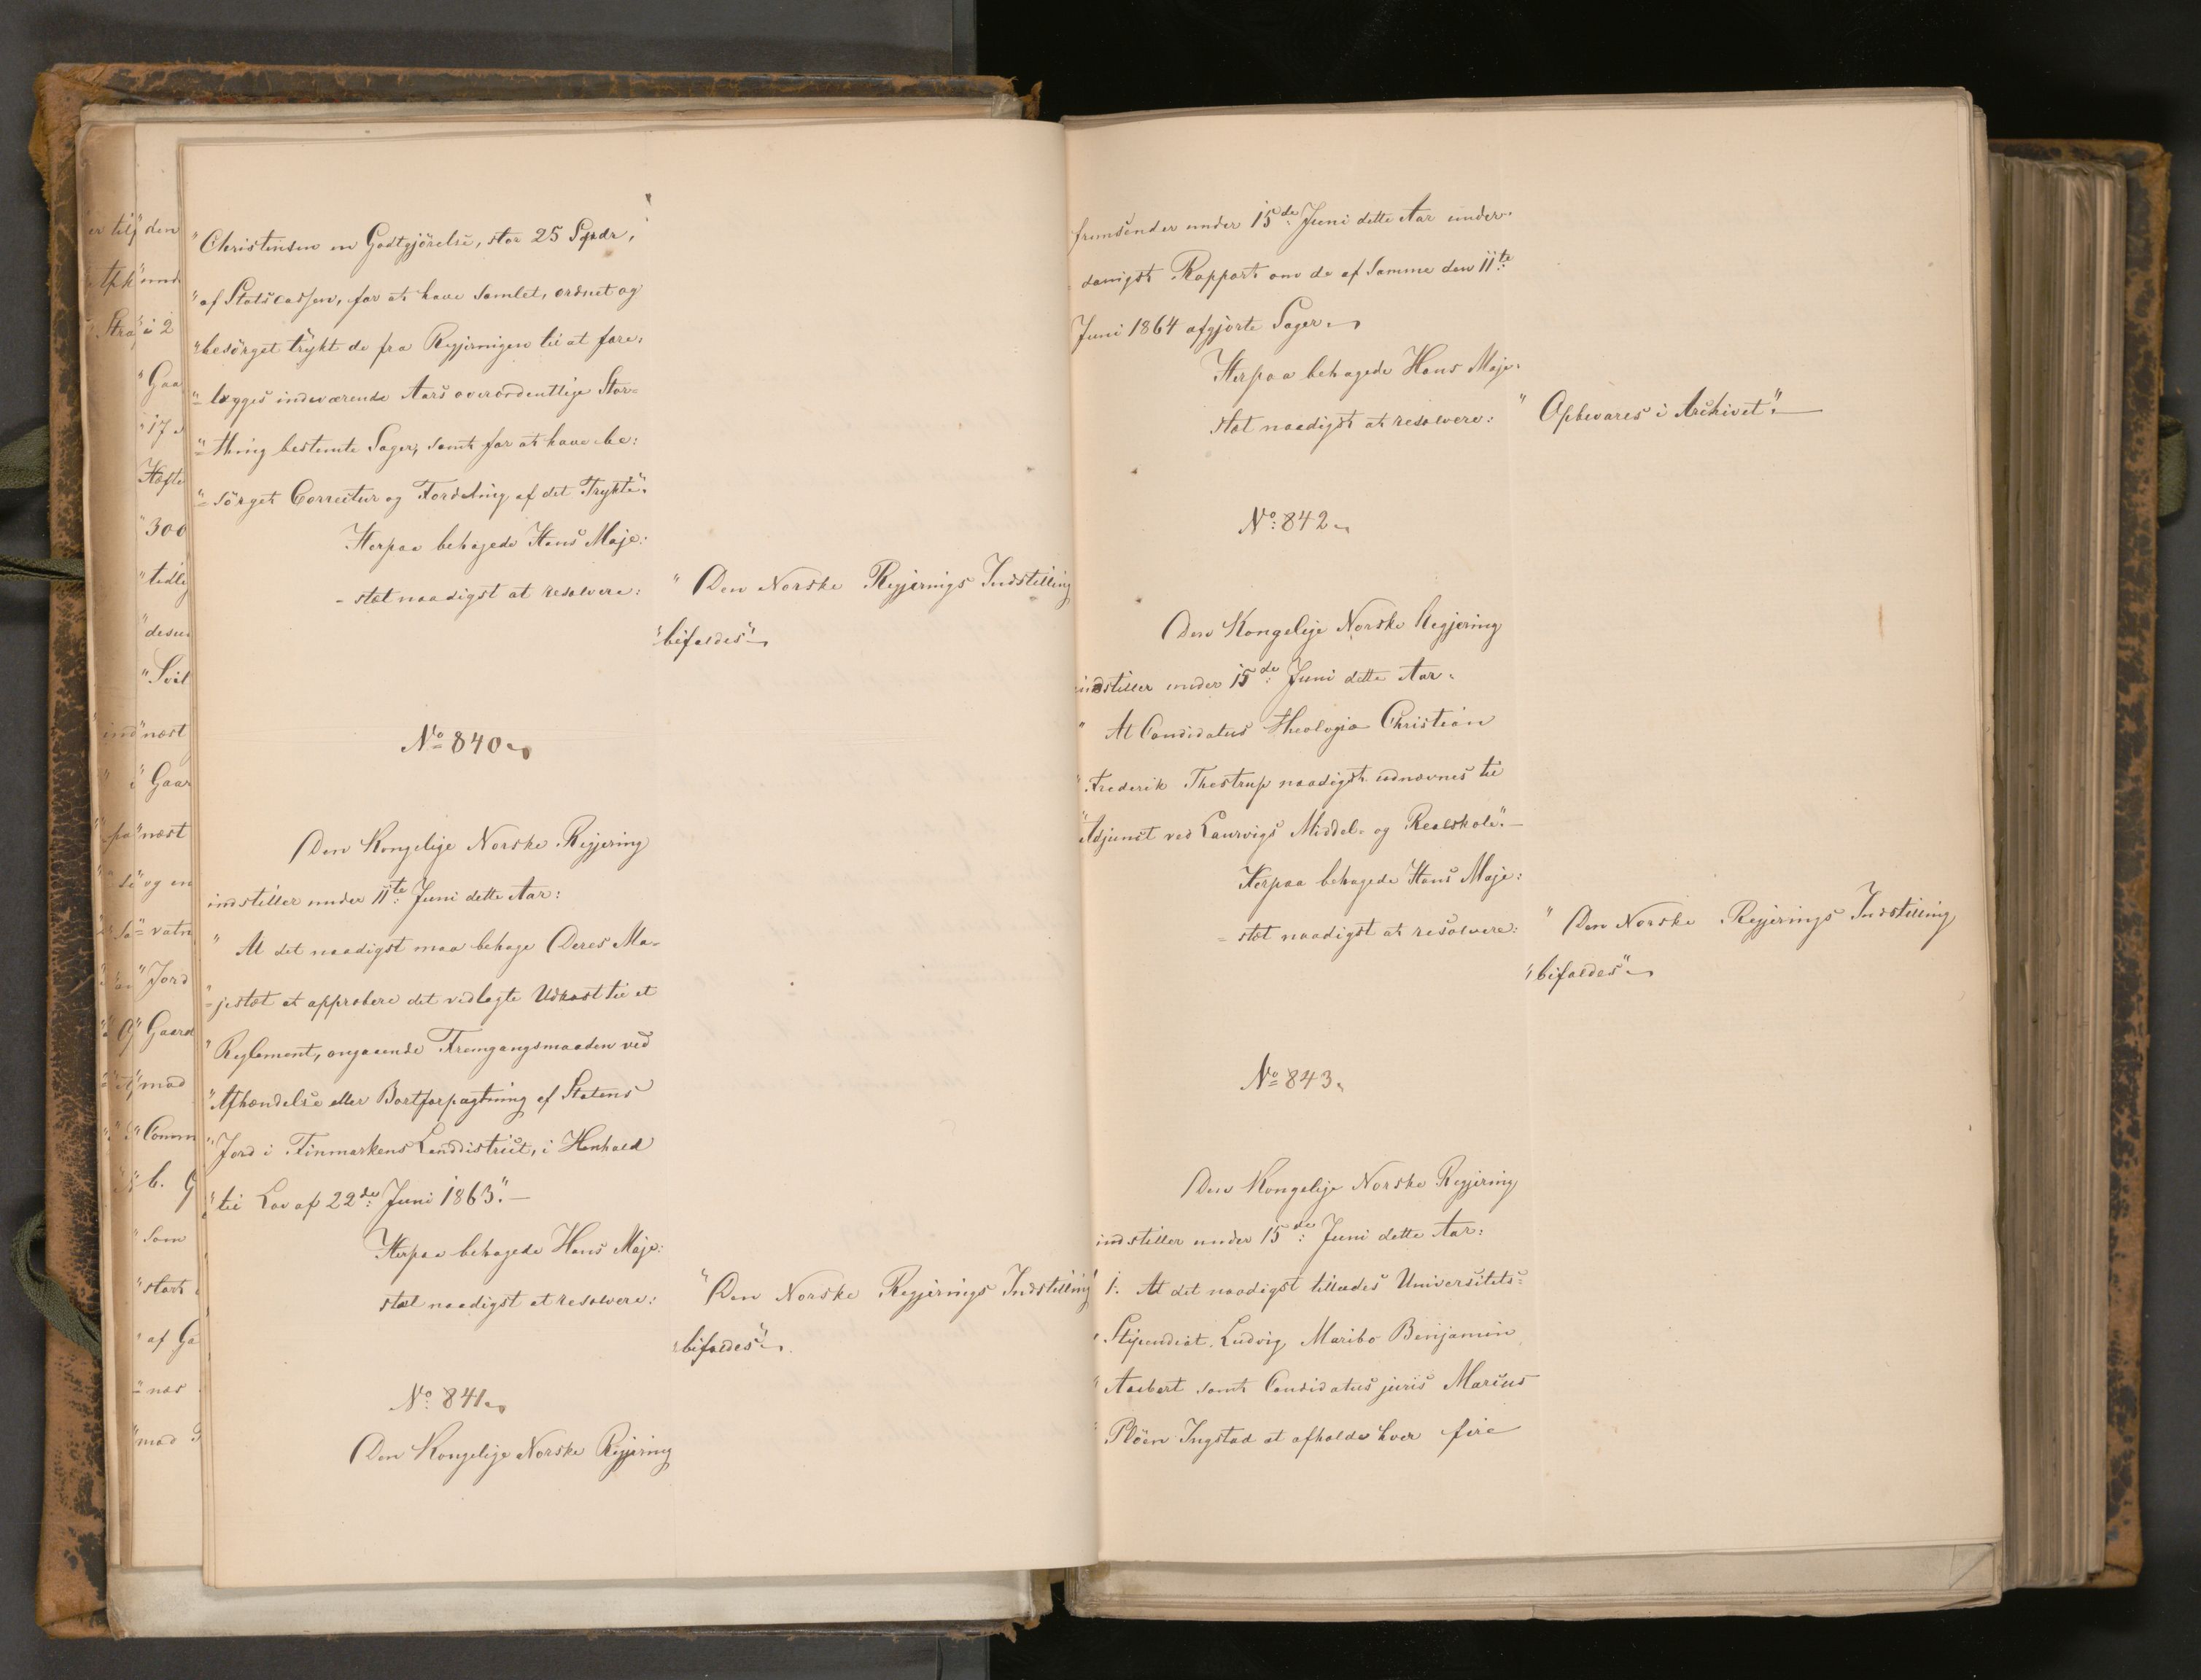 "Christensen en Godtgjörelse, stor 25 Spdr,
"af Statscassen, for at have samlet, ordnet og
"besörget trykt de fra Regjeringen til at fore:
"=lægges indeværende Aars overordentlige Stor=
"=thing bestemte Sager, samt for at have be:
"=sörget Correctur og Fordeling af det Trykte".
Herpaa behagede Hans Maje:
=stæt naadigst at resolvere:
"Den Norske Regjerings Indstilling
"bifaldes".
No 840.
Den Kongelige Norske Regjering
indstiller under 11te Juni dette Aar:
"At det naadigst maa behage Deres Ma=
"=jestæt at approbere det vedlagte Udkast til et
"Reglement, angaaende Fremgangsmaaden ved
"Afhændelse eller Bortforpagtning af Statens
"Jord i Finmarkens Landdistrict, i Henhold
"til Lov af 22de Juni 1863".
Herpaa behagede Hans Maje:
stæt naadigst at resolvere:
"Den Norske Regjerings Indstilling
"bifaldes".
No 841.
Den Kongelige Norske Regjering
fremsender under 15de Juni dette Aar under=
=danigst Rapport om de af Samme den 11te
Juni 1864 afgjorte Sager.
Herpaa behagede Hans Maje=
stæt naadigst at resolvere:
"Opbevares i Archivet".
No 842.
Den Kongelige Norske Regjering
indstiller under 15de Juni dette Aar:
"At Candidatus theologiæ Christian
"Frederik Thestrup naadigst udnævnes til
"Adjunct ved Laurvigs Middel- og Realskole".
Herpaa behagede Hans Maje:
=stæt naadigst at resolvere:
"Den Norske Regjerings Indstilling
"bifaldes".
No 843.
Den Kongelige Norske Regjering
indstiller under 15de Juni dette Aar:
"1. At det naadigst tillades Universitets=
"Stipendiat Ludvig Maribo Benjamin
"Aubert samt Candidatus juris Marius
"Plöen Ingstad at afholde hver fire